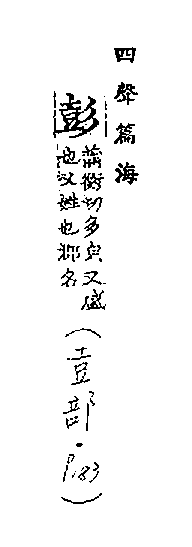 四聲篇海
彭
蒲衡切多皃又盛
也又姓也郡名
(壴部·P.183)